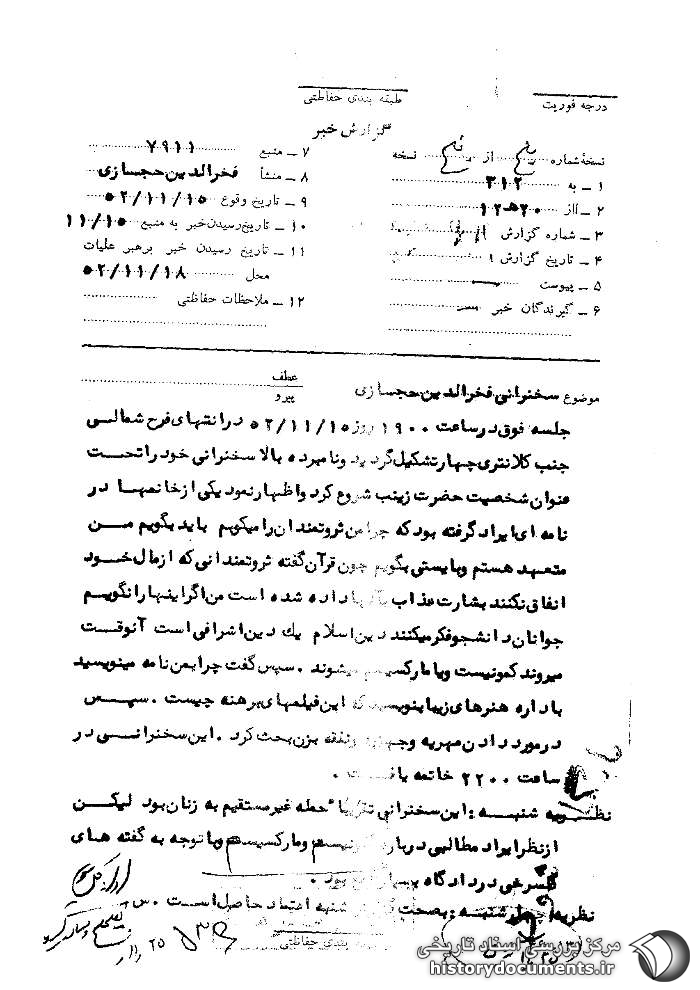 طبقه بندی حفاظتی
درجه فوریت
گزارش خبر
نسخهٔ شماره از نسخه
۱ ـ به ۳۱۲
۲ ـ از ۲۰هـ۱۲
۳ ـ شماره گزارش
۴ ـ تاریخ گزارش
۵ ـ پیوست
۶ ـ گیرندگان خبر
۷ ـ منبع ۷۹۱۱
۸ ـ منشأ فخرالدین حجسازی
۹ ـ تاریخ وقوع ۵۲/۱۱/۱۵
۱۰ ـ تاریخ رسیدن خبر به منبع ۱۱/۱۵
۱۱ ـ تاریخ رسیدن خبر برهبر علیات
محل ۵۲/۱۱/۱۸
۱۲ ـ ملاحظات حفاظتی
موضوع سخنرانی فخرالدین حجسازی
عطف
پیرو
جلسه فوق در ساعت ۱۹۰۰ روز ۵۲/۱۱/۱۵ در انتهای فرح شمالی
جنب کلانتری چهار تشکیل گردید و نامبرده بالا سخنرانی خود را تحت
عنوان شخصیت حضرت زینب شروع کرد و اظهار نمود یکی از خانمها در
نامه ای ایراد گرفته بود که چرا من ثروتمندان را میکوبم باید بگویم من
متعهد هستم و بایستی بگویم چون قرآن گفته ثروتمندانی که از مال خود
انفاق نکنند بشارت عذاب بآنها داده شده است من اگر اینها را نگویم
جوانان دانشجو فکر میکنند دین اسلام یك دین اشرافی است آنوقت
میروند کمونیست و یا مارکسیسم میشوند . سپس گفت چرا بمن نامه مینویسید
باداره هنرهای زیبا بنویسید که این فیلمهای برهنه چیست . سپس
در مورد دادن مهریه و جهیزیه و نفقه بزن بحث کرد . این سخنرانی در
ساعت ۲۲۰۰ خاتمه یافت .
نظریه شنبه : این سخنرانی تقریبا حمله غیر مستقیم به زنان بود لیکن
از نظر ایراد مطالبی درباره کمونیسم و مارکسیسم و با توجه به گفته های
گلسرخی در دادگاه بسیار بود .
نظریه چهارشنبه : بصحت گزارش شنبه اعتماد حاصل است . س
طبقه بندی حفاظتی
مرکز بررسی اسناد تاریخی
historydocuments.ir